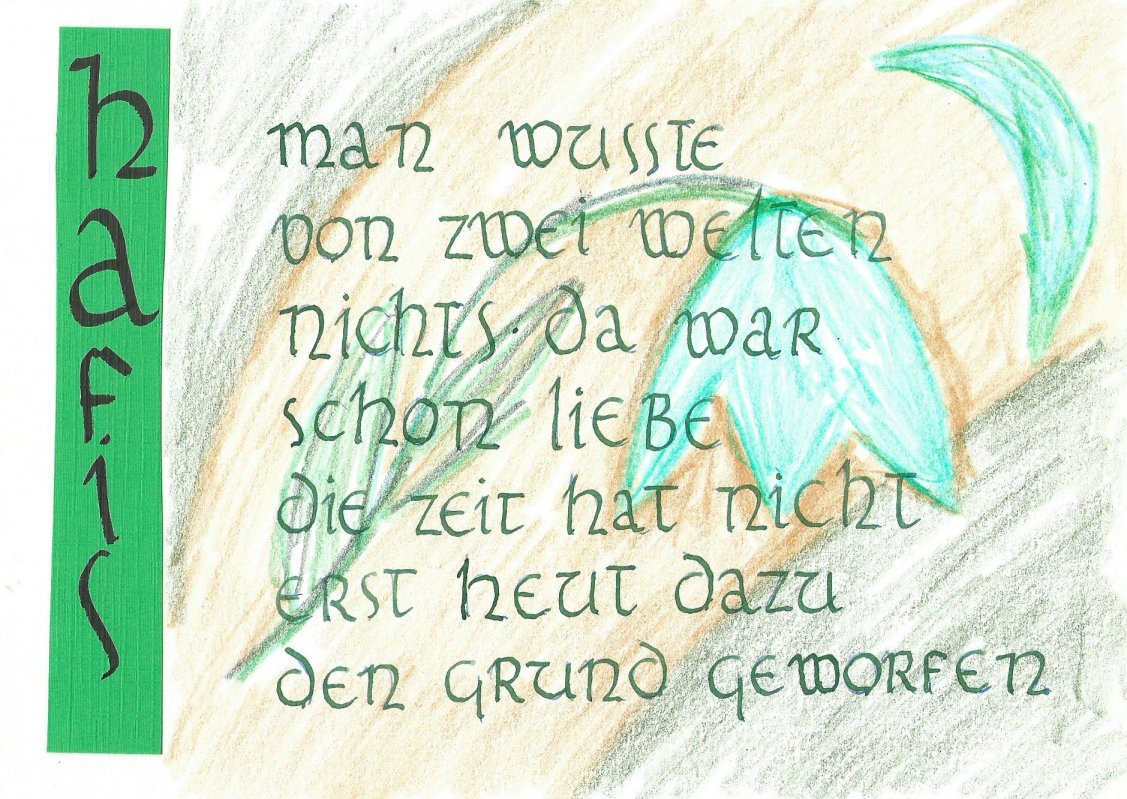 hafis
man wusste
von zwei welten
nichts. da war
schon liebe
die zeit hat nicht
erst heut dazu
den grund geworfen